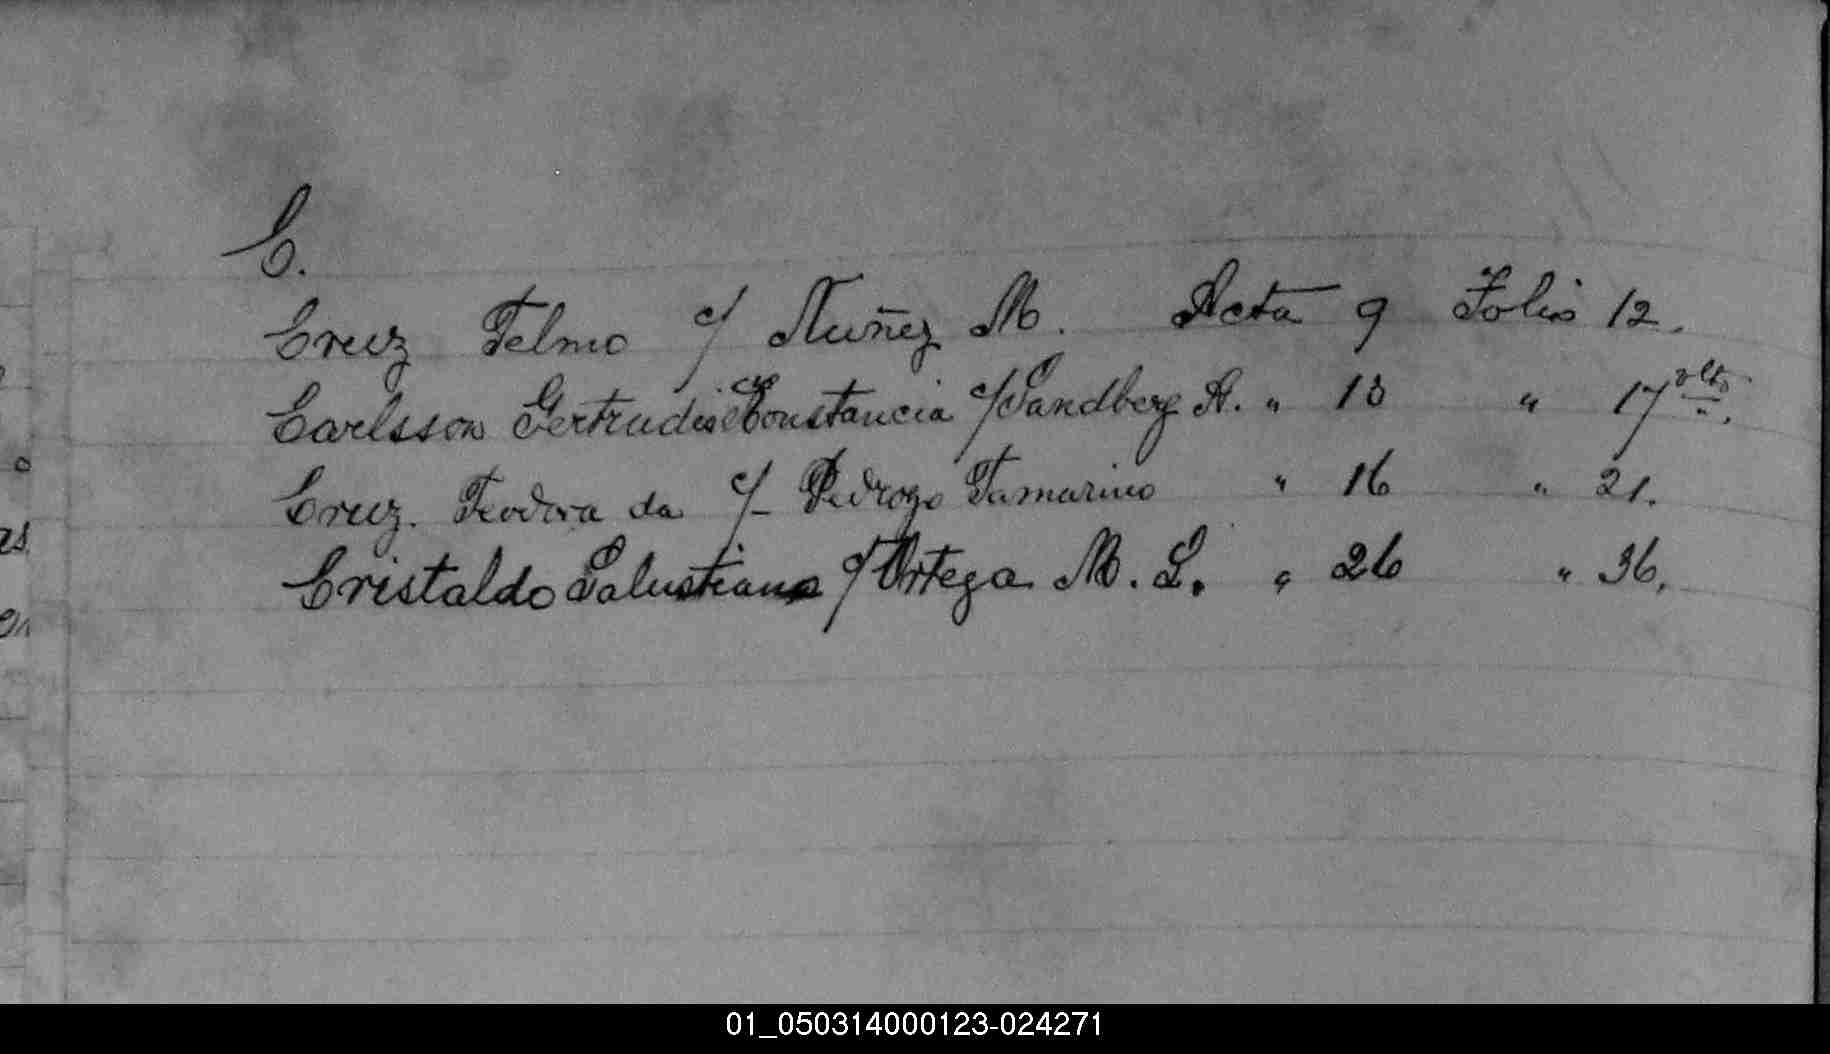 C.
Cruz Telmo c/ Nuñez M. Acta 9 Folio 12.
Carlsson Gertrudis Constancia c/ Sandberg A. " 13 " 17 vlto.
Cruz. Teodora da c/ Pedrozo Tamarino " 16 " 21.
Cristaldo Salustiano c/ Ortega M. L. " 26 " 36.
o
as
01_050314000123-024271